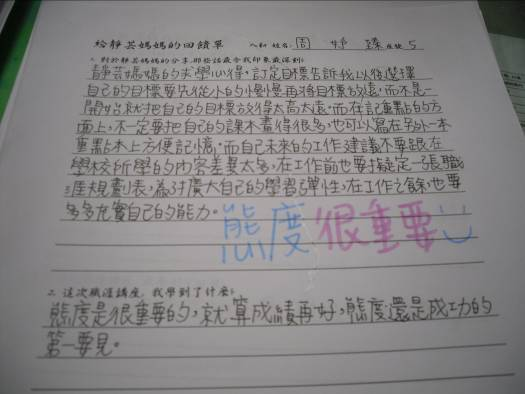 給靜芸媽媽的回饋單 八和 姓名:周 臻 座號 5
1. 對於靜芸媽媽的分享,那些話最令我印象最深刻:
靜芸媽媽的求學心得,訂定目標告訴我以後選擇
自己的目標要先從小的慢慢再將目標放遠,而不是一
開始就把自己的目標放得太高太遠。而在記重點的方
面上,不一定要把自己的課本畫得很多,也可以寫在另外一本
重點本上方便記憶,而自己未來的工作建議不要跟在
學校所學的內容差異太多,在工作前也要擬定一張職
涯規劃表,為了擴大自己的學習彈性,在工作之餘也要
多多充實自己的能力。態度很重要
2. 這次職涯講座,我學到了什麼:
態度是很重要的,就算成績再好,態度還是成功的
第一要見。